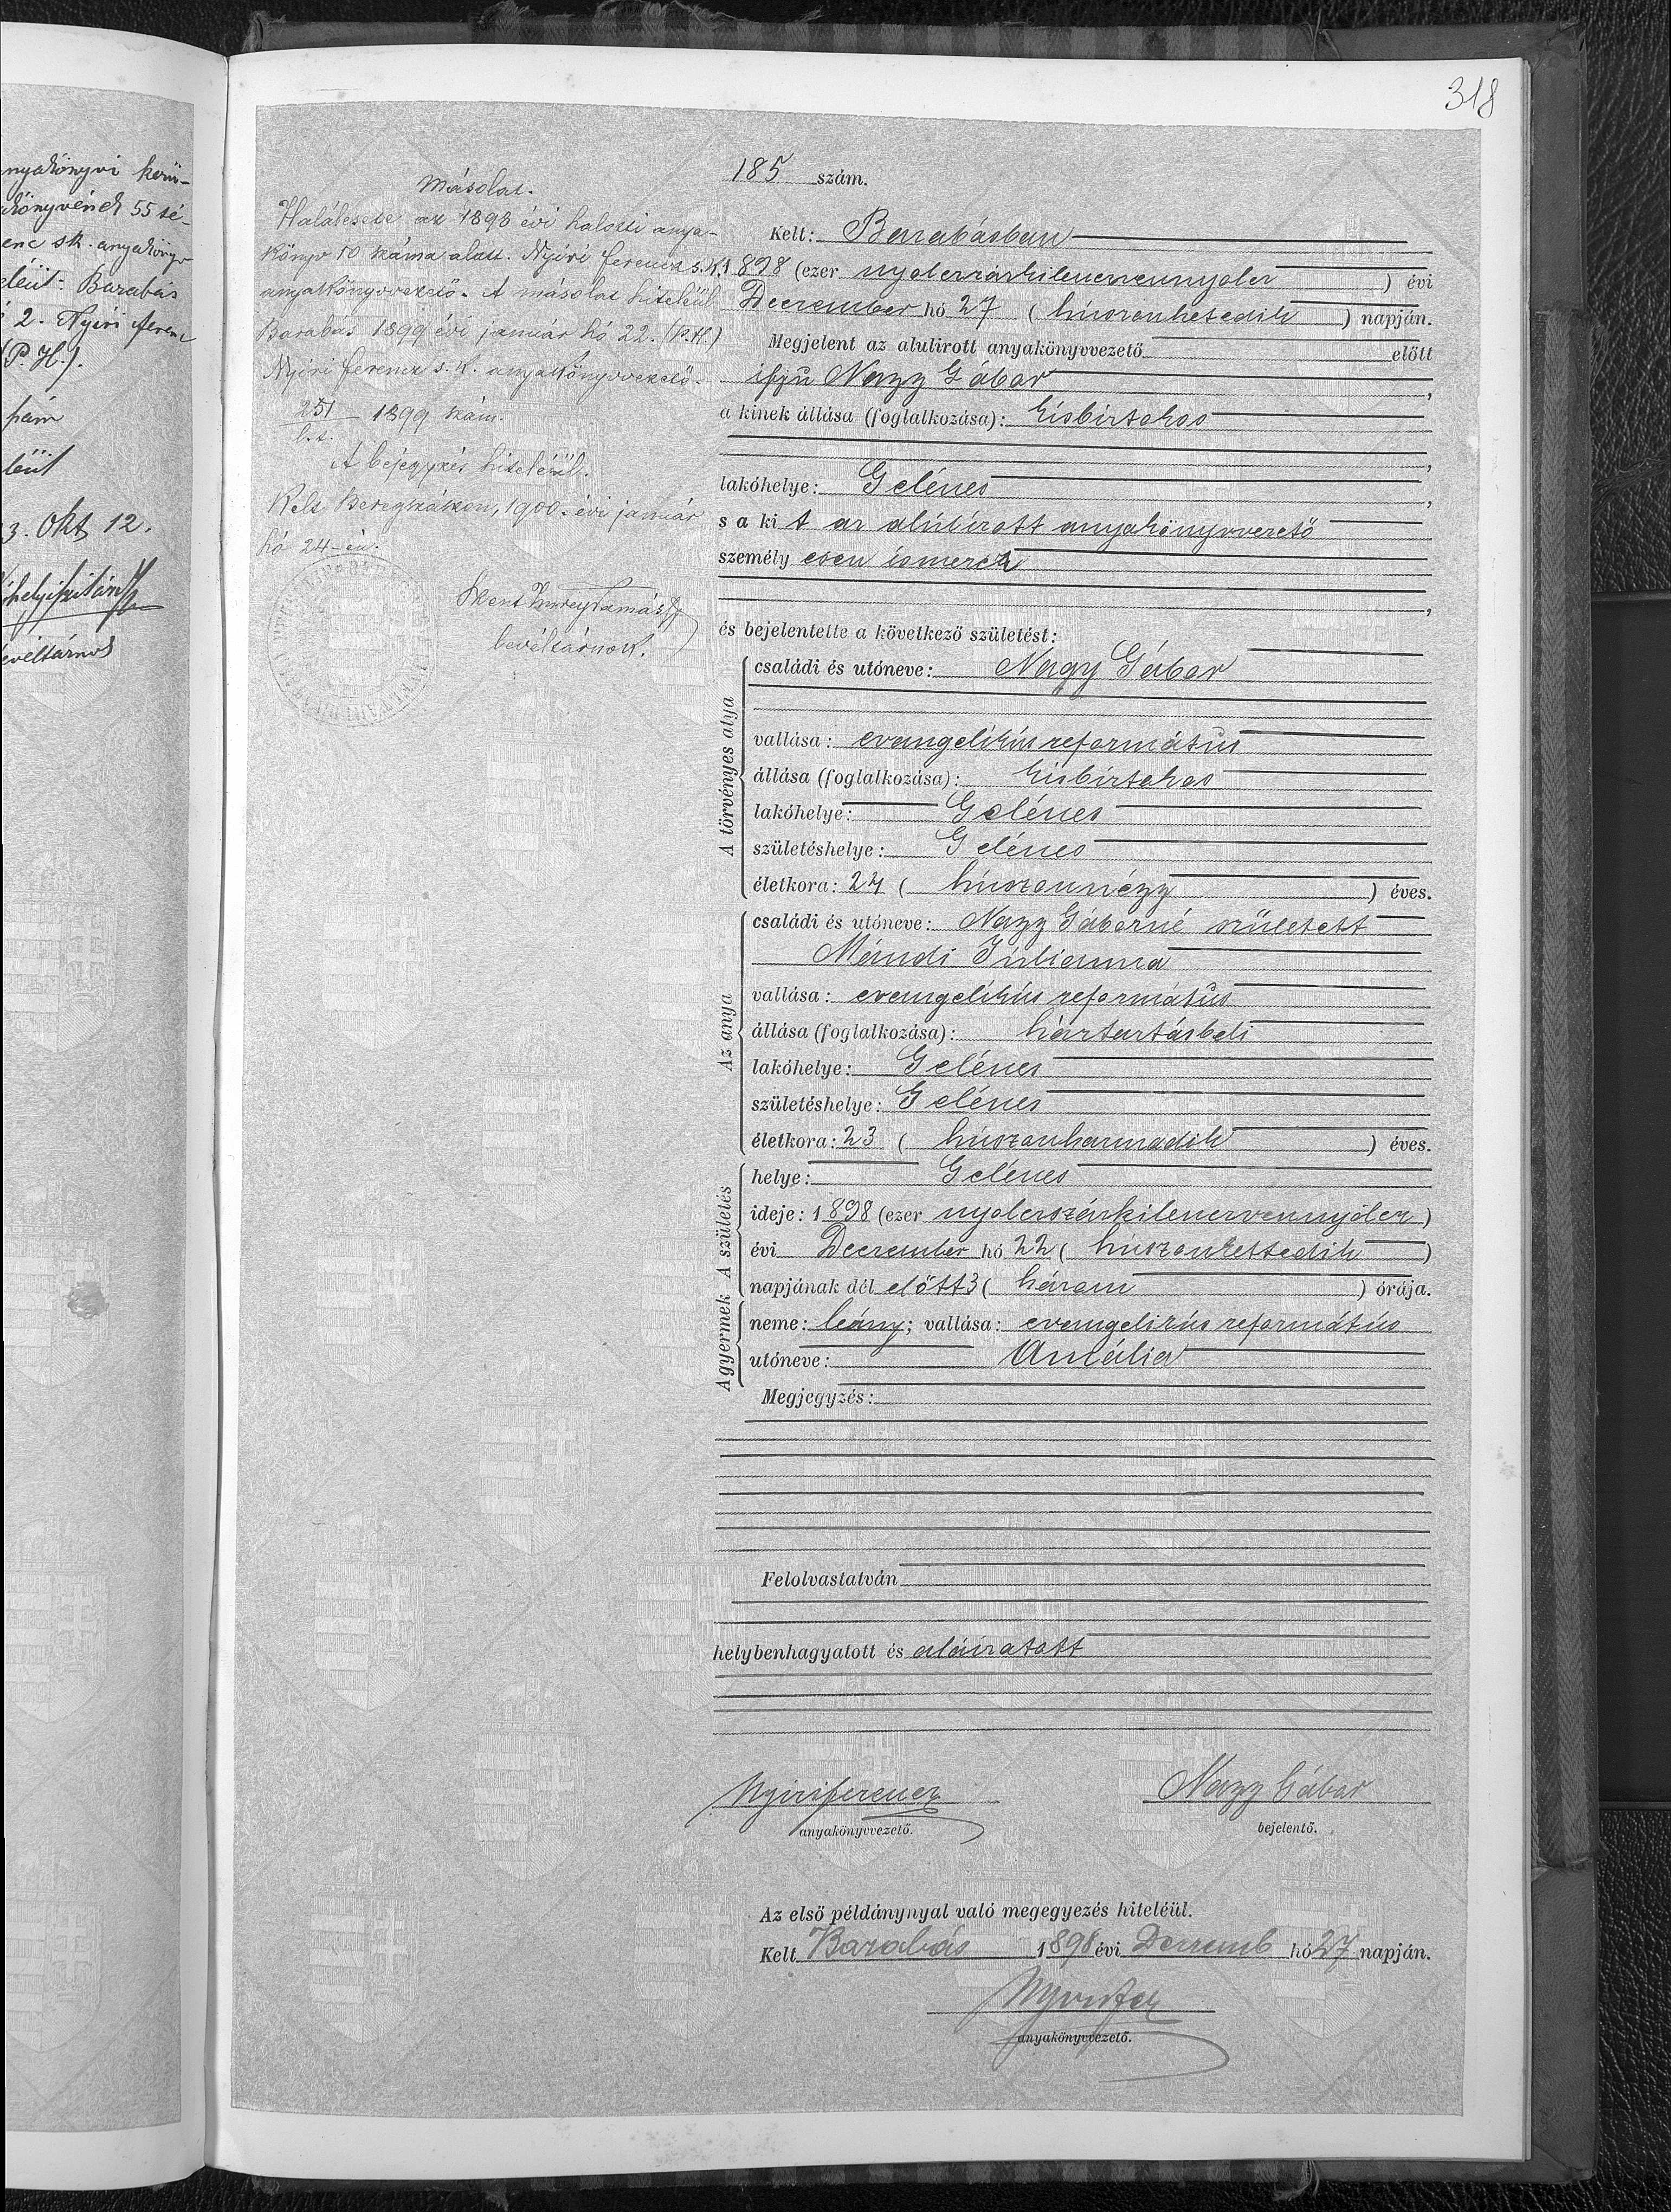 318
nyakönyvi kerü-
akönyvének 55 té-
enc sk. anyakönyv
Barabás
2. Nyíri ferenc
(P. H.)
3. Okt 12.
levéltárnok
Másolat.
Halálesete az 1898 évi halotti anya-
könyv 50 száma alatt. Nyíri ferencz s. k.
anyakönyvvezető. A másolat hiteléül
Barabás 1899 évi január hó 22. (P. H.)
Nyíri ferencz s. k. anyakönyvvezető.
251 - 1899 szám.
A bejegyzés hiteléül.
Kelt Beregszászon, 1900. évi január
hó 24-én.
Szent Imrey Tamás
levéltárnok.
185 szám.
Kelt: Barabásban
1898 (ezer nyolczszázkilenczvennyolcz ) évi
Deczember hó 27 ( húszonhetedik ) napján.
Megjelent az alulirott anyakönyvvezető előtt
ifjú Nagy Gábor ,
a kinek állása (foglalkozása): kisbirtokos
,
lakóhelye: Gelénes ,
s a ki t az alúlírott anyakönyvvezető
személy esen ismerek
,
és bejelentette a következő születést:
A törvényes atya
családi és utóneve: Nagy Gábor
vallása: evangelikús református
állása (foglalkozása): kisbirtokos
lakóhelye: Gelénes
születéshelye: Gelénes
életkora: 24 ( húszonnégy ) éves.
Az anya
családi és utóneve: Nagy Gáborné született
Mándi Júlianna
vallása: evangelikús református
állása (foglalkozása): háztartásbeli
lakóhelye: Gelénes
születéshelye: Gelénes
életkora: 23 ( húszonharmadik ) éves.
A gyermek A születés
helye: Gelénes
ideje: 1898 (ezer nyolczszázkilenczvennyólcz )
évi Deczember hó 22 ( húszonkettedik )
napjának dél előtt 3 ( három ) órája.
neme: leány; vallása: evangelikús református
utóneve: Amália
Megjegyzés:
Felolvastatván
helybenhagyatott és aláiratott
Nyiri ferencz
anyakönyvvezető.
Nagy Gábor
bejelentő.
Az első példánynyal való megegyezés hiteléül.
Kelt Barabás 1898 évi Deczemb hó 27 napján.
Nyiri
anyakönyvvezető.